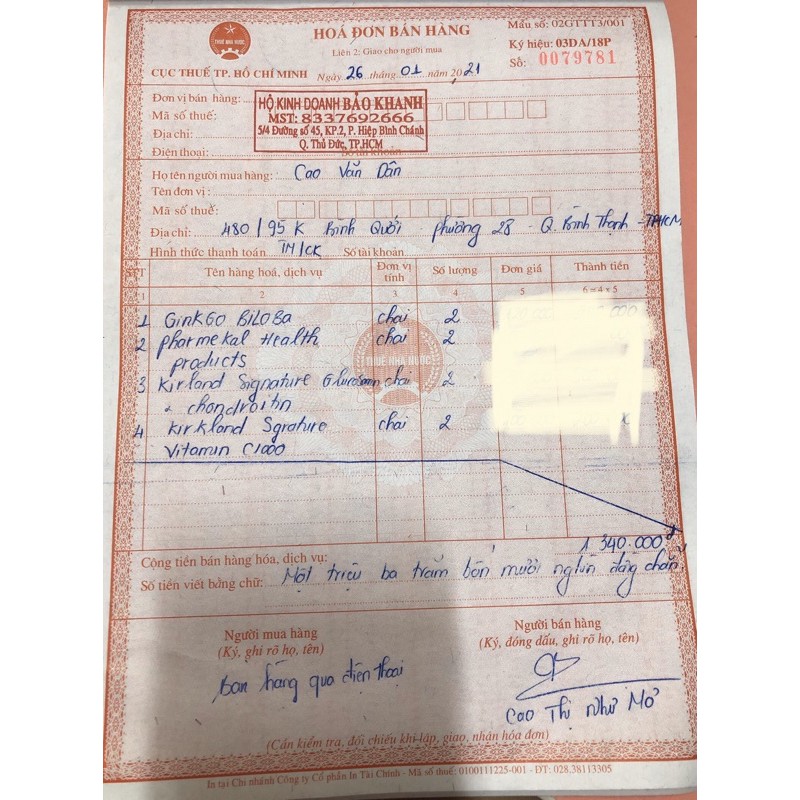 HOÁ ĐƠN BÁN HÀNG
Mẫu số: 02GTTT3/001
Liên 2: Giao cho người mua
Ký hiệu: 03DA/18P
THUẾ NHÀ NƯỚC
CỤC THUẾ TP. HỒ CHÍ MINH
Ngày 26 tháng 01 năm 2021
Số: 0079781
Đơn vị bán hàng:
HỘ KINH DOANH BẢO KHANH
Mã số thuế:
MST: 8337692666
Địa chỉ:
5/4 Đường số 45, KP.2, P. Hiệp Bình Chánh
Q. Thủ Đức, TP.HCM
Điện thoại: Số tài khoản
Họ tên người mua hàng: Cao Văn Dân
Tên đơn vị:
Mã số thuế:
Địa chỉ: 480/95K Bình Quới phường 28 - Q. Bình Thạnh - TPHCM
Hình thức thanh toán TM/CK Số tài khoản
STT Tên hàng hoá, dịch vụ Đơn vị tính Số lượng Đơn giá Thành tiền
1 2 3 4 5 6 = 4 x 5
1 GinkGo BiLOBa chai 2
2 pharmekal Health chai 2
products
3 Kirland Signature Glucosamin chai 2
& chondroitin
4 Kirkland Sgrature chai 2
Vitamin C1000
THUẾ NHÀ NƯỚC
Cộng tiền bán hàng hóa, dịch vụ: 1.340.000đ
Số tiền viết bằng chữ: Một triệu ba trăm bốn mươi nghìn đồng chẵn
Người mua hàng
(Ký, ghi rõ họ, tên)
Bán hàng qua điện thoại
Người bán hàng
(Ký, đóng dấu, ghi rõ họ, tên)
Cao Thị Như Mơ
(Cần kiểm tra, đối chiếu khi lập, giao, nhận hóa đơn)
In tại Chi nhánh Công ty Cổ phần In Tài Chính - Mã số thuế: 0100111225-001 - ĐT: 028.38113305